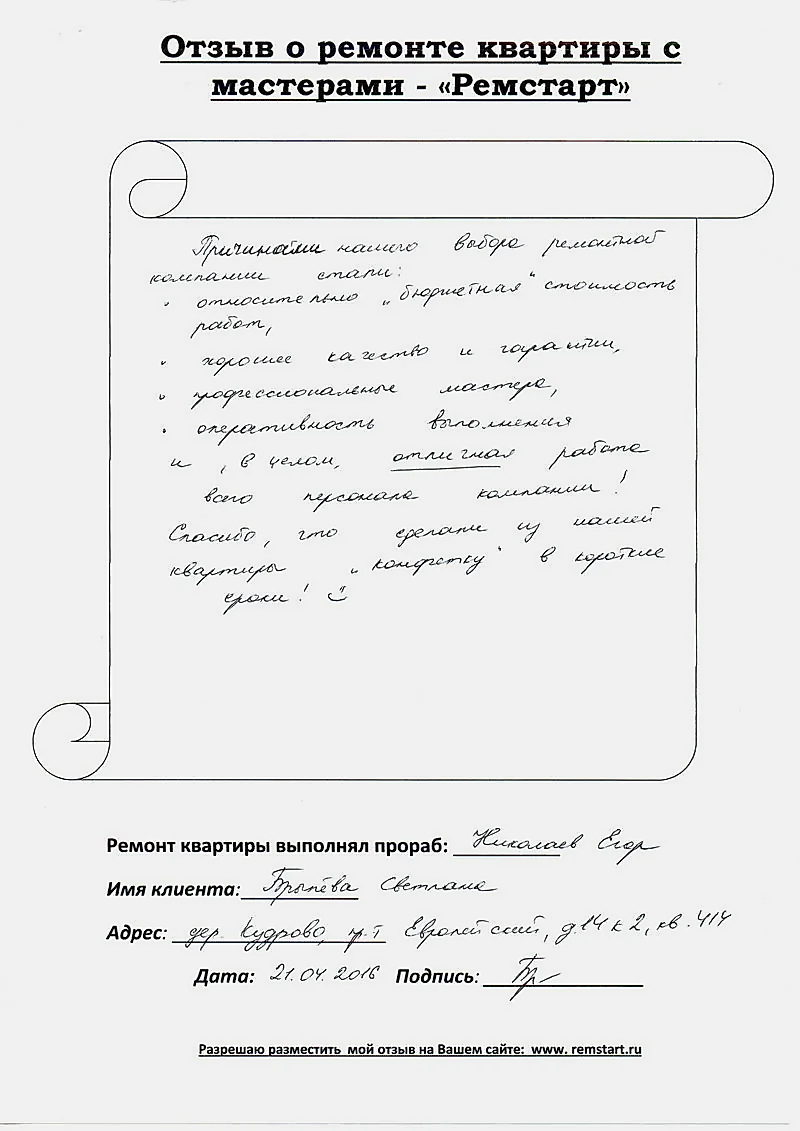 Отзыв о ремонте квартиры с
мастерами - «Ремстарт»
Причинами нашего выбора ремонтной
компании стали:
• относительно „бюджетная" стоимость
работ,
• хорошее качество и гарантии,
• профессиональные мастера,
• оперативность выполнения
и , в целом, отличная работа
всего персонала компании!
Спасибо, что сделали из нашей
квартиры „конфетку" в короткие
сроки! :)
Ремонт квартиры выполнял прораб: Николаев Егор
Имя клиента: Светлана
Адрес: дер. Кудрово, пр-т Европейский, д.14 к 2, кв. 414
Дата: 21.04.2016 Подпись: Бр
Разрешаю разместить мой отзыв на Вашем сайте: www. remstart.ru